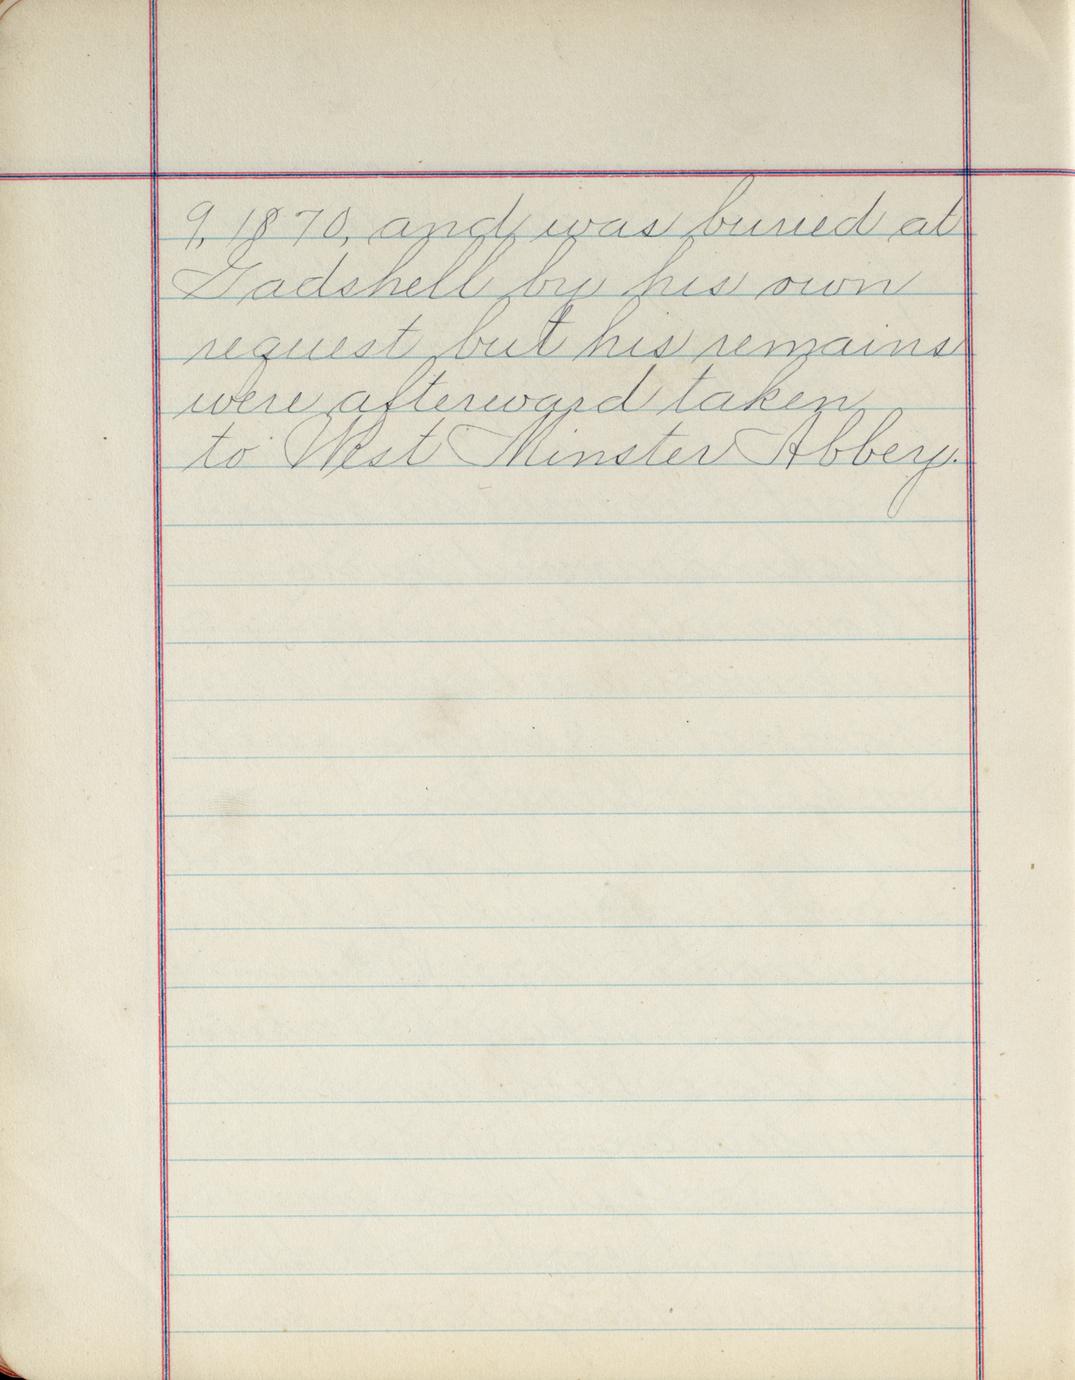 9, 1870, and was buried at
Gadshell by his own
request but his remains
were afterward taken
to West Minster Abbery.